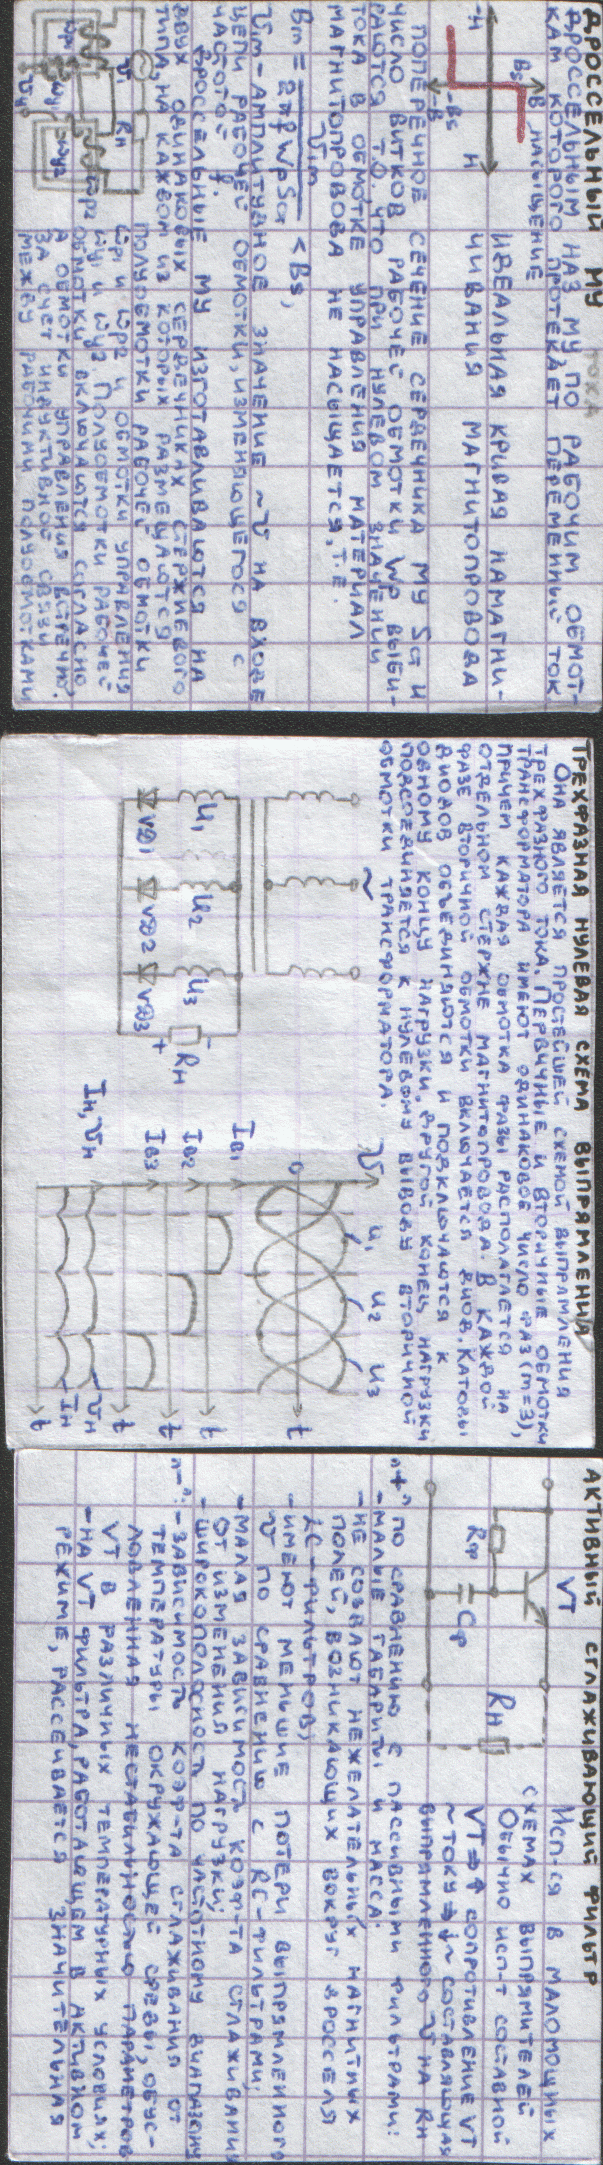 ДРОССЕЛЬНЫЙ МУ
ДРОССЕЛЬНЫМ НАЗ МУ, ПО РАБОЧИМ ОБМОТ-
КАМ КОТОРОГО ПРОТЕКАЕТ ПЕРЕМЕННЫЙ ТОК
ТОКА
B НАСЫЩЕНИЕ
Bs
-H
H
-Bs
-B
ИДЕАЛЬНАЯ КРИВАЯ НАМАГНИ-
ЧИВАНИЯ МАГНИТОПРОВОДА
ПОПЕРЕЧНОЕ СЕЧЕНИЕ СЕРДЕЧНИКА МУ Sст И
ЧИСЛО ВИТКОВ РАБОЧЕЙ ОБМОТКИ Wр ВЫБИ-
РАЮТСЯ Т.О. ЧТО ПРИ НУЛЕВОМ ЗНАЧЕНИИ
ТОКА В ОБМОТКЕ УПРАВЛЕНИЯ МАТЕРИАЛ
МАГНИТОПРОВОДА НЕ НАСЫЩАЕТСЯ, Т.Е.
Bm = Uim / 2πf Wp Sст < Bs,
Uim - АМПЛИТУДНОЕ ЗНАЧЕНИЕ ~U НА ВХОДЕ
ЦЕПИ РАБОЧЕЙ ОБМОТКИ, ИЗМЕНЯЮЩЕГОСЯ С
ЧАСТОТОЙ f.
ДРОССЕЛЬНЫЕ МУ ИЗГОТАВЛИВАЮТСЯ НА
ДВУХ ОДИНАКОВЫХ СЕРДЕЧНИКАХ СТЕРЖНЕВОГО
ТИПА, НА КАЖДОМ ИЗ КОТОРЫХ РАЗМЕЩАЮТСЯ
ПОЛУОБМОТКИ РАБОЧЕЙ ОБМОТКИ
ωр1 И ωр2 И ОБМОТКИ УПРАВЛЕНИЯ
ωу1 И ωу2. ПОЛУОБМОТКИ РАБОЧЕЙ
ОБМОТКИ ВКЛЮЧАЮТСЯ СОГЛАСНО,
А ОБМОТКИ УПРАВЛЕНИЯ ВСТРЕЧНО.
ЗА СЧЕТ ИНДУКТИВНОЙ СВЯЗИ
МЕЖДУ РАБОЧИМИ ПОЛУОБМОТКАМИ
U1
Rн
ωр1
ωр2
ωу1
ωу2
Uу
ТРЕХФАЗНАЯ НУЛЕВАЯ СХЕМА ВЫПРЯМЛЕНИЯ
ОНА ЯВЛЯЕТСЯ ПРОСТЕЙШЕЙ СХЕМОЙ ВЫПРЯМЛЕНИЯ
ТРЕХФАЗНОГО ТОКА. ПЕРВИЧНЫЕ И ВТОРИЧНЫЕ ОБМОТКИ
ТРАНСФОРМАТОРА ИМЕЮТ ОДИНАКОВОЕ ЧИСЛО ФАЗ (m=3),
ПРИЧЕМ КАЖДАЯ ОБМОТКА ФАЗЫ РАСПОЛАГАЕТСЯ НА
ОТДЕЛЬНОМ СТЕРЖНЕ МАГНИТОПРОВОДА. В КАЖДОЙ
ФАЗЕ ВТОРИЧНОЙ ОБМОТКИ ВКЛЮЧАЕТСЯ ДИОД. КАТОДЫ
ДИОДОВ ОБЪЕДИНЯЮТСЯ И ПОДКЛЮЧАЮТСЯ К
ОДНОМУ КОНЦУ НАГРУЗКИ. ДРУГОЙ КОНЕЦ НАГРУЗКИ
ПОДСОЕДИНЯЕТСЯ К НУЛЕВОМУ ВЫВОДУ ВТОРИЧНОЙ
ОБМОТКИ ТРАНСФОРМАТОРА.
~
U1
U2
U3
VD1
VD2
VD3
-
Rн
+
U
U1
U2
U3
0
t
Iв1
t
Iв2
t
Iв3
t
Iн, Uн
Uн
Iн
t
АКТИВНЫЙ СГЛАЖИВАЮЩИЙ ФИЛЬТР
VT
Rф
Cф
Rн
ИСП-СЯ В МАЛОМОЩНЫХ
СХЕМАХ ВЫПРЯМИТЕЛЕЙ
ОБЫЧНО ИСП-Т СОСТАВНОЙ
VT ⇒ ↑ СОПРОТИВЛЕНИЕ VT
~ ТОКУ ⇒ ↓ ~ СОСТАВЛЯЮЩАЯ
ВЫПРЯМЛЕННОГО U НА Rн
"+" ПО СРАВНЕНИЮ С ПАССИВНЫМИ ФИЛЬТРАМИ:
- МАЛЫЕ ГАБАРИТЫ И МАССА;
- НЕ СОЗДАЮТ НЕЖЕЛАТЕЛЬНЫХ МАГНИТНЫХ
ПОЛЕЙ, ВОЗНИКАЮЩИХ ВОКРУГ ДРОССЕЛЯ
LC-ФИЛЬТРОВ;
- ИМЕЮТ МЕНЬШИЕ ПОТЕРИ ВЫПРЯМЛЕННОГО
U ПО СРАВНЕНИЮ С RC-ФИЛЬТРАМИ;
- МАЛАЯ ЗАВИСИМОСТЬ КОЭФ-ТА СГЛАЖИВАНИЯ
ОТ ИЗМЕНЕНИЯ НАГРУЗКИ;
- ШИРОКОПОЛОСНОСТЬ ПО ЧАСТОТНОМУ ДИАПАЗОНУ
"-": - ЗАВИСИМОСТЬ КОЭФ-ТА СГЛАЖИВАНИЯ ОТ
ТЕМПЕРАТУРЫ ОКРУЖАЮЩЕЙ СРЕДЫ, ОБУС-
ЛОВЛЕННАЯ НЕСТАБИЛЬНОСТЬЮ ПАРАМЕТРОВ
VT В РАЗЛИЧНЫХ ТЕМПЕРАТУРНЫХ УСЛОВИЯХ;
- НА VT ФИЛЬТРА, РАБОТАЮЩЕМ В АКТИВНОМ
РЕЖИМЕ, РАССЕИВАЕТСЯ ЗНАЧИТЕЛЬНАЯ